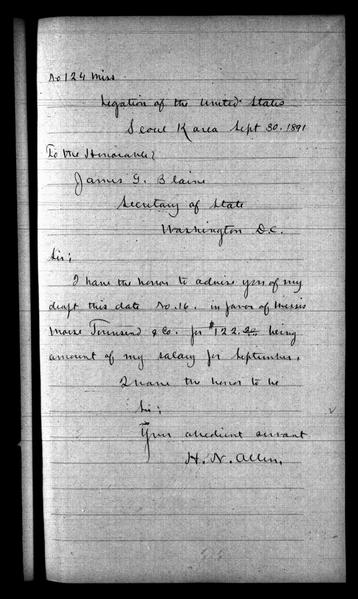 No 124 Miss
Legation of the United States
Seoul Korea Sept 30. 1891
To the Honorable;
James G. Blaine
Secretary of State
Washington D.C.
Sir;
I have the honor to advise you of my
draft this date No. 16. in favor of Messis
Morse Townsend & Co. for $122.20 being
amount of my salary for September.
I have the honor to be
Sir;
Your obedient servant
H. N. Allen.